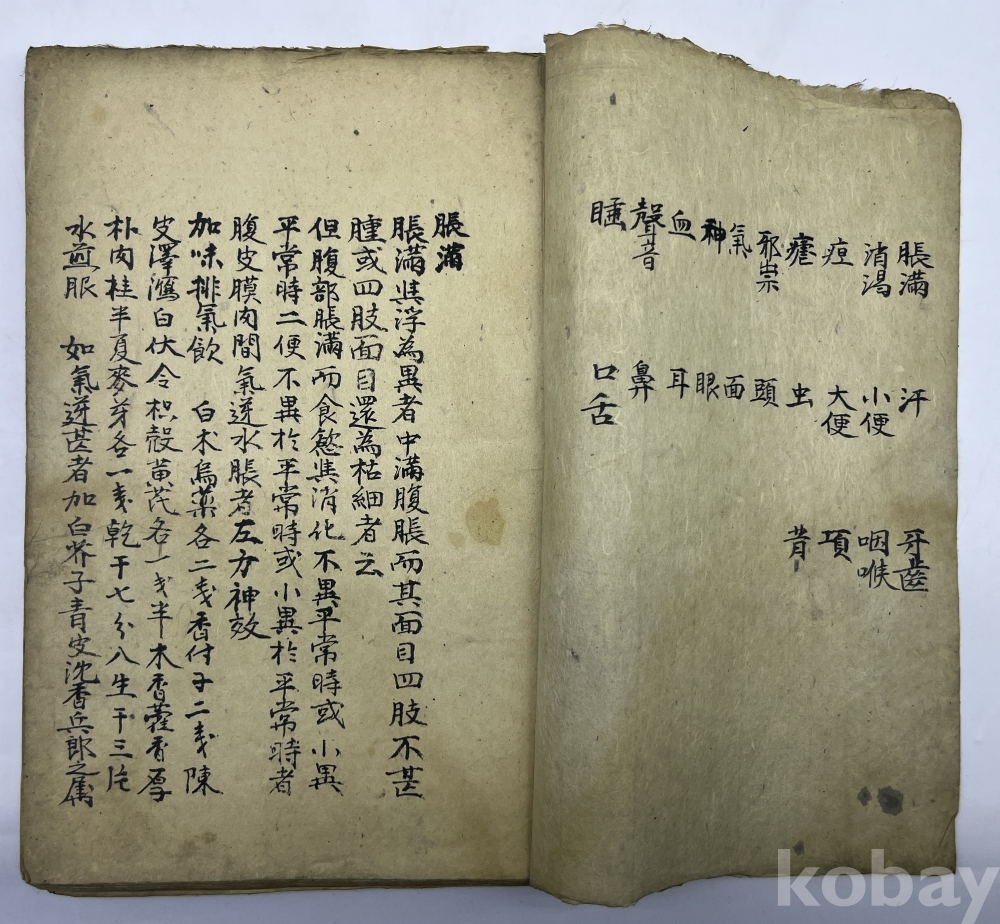 脹滿
消渴
疸
瘧
邪祟
氣
神
血
聲音
睡
汗
小便
大便
虫
頭
面
眼
耳
鼻
口舌
牙齒
咽喉
項
背
脹滿
脹滿與浮為異者中滿腹脹而其面目四肢不甚
腫或四肢面目還為枯細者云
但腹部脹滿而食慾與消化不異平常時或小異
平常時二便不異於平常時或小異於平常時者
腹皮膜肉間氣逆水脹者左方神效
加味排氣飮 白朮烏藥各二戔香付子二戔陳
皮澤瀉白伏令枳殼黃芪各一戔半木香藿香厚
朴肉桂半夏麥芽各一戔乾干七分入生干三片
水煎服 如氣逆甚者加白芥子青皮沈香兵郎之屬
kobay